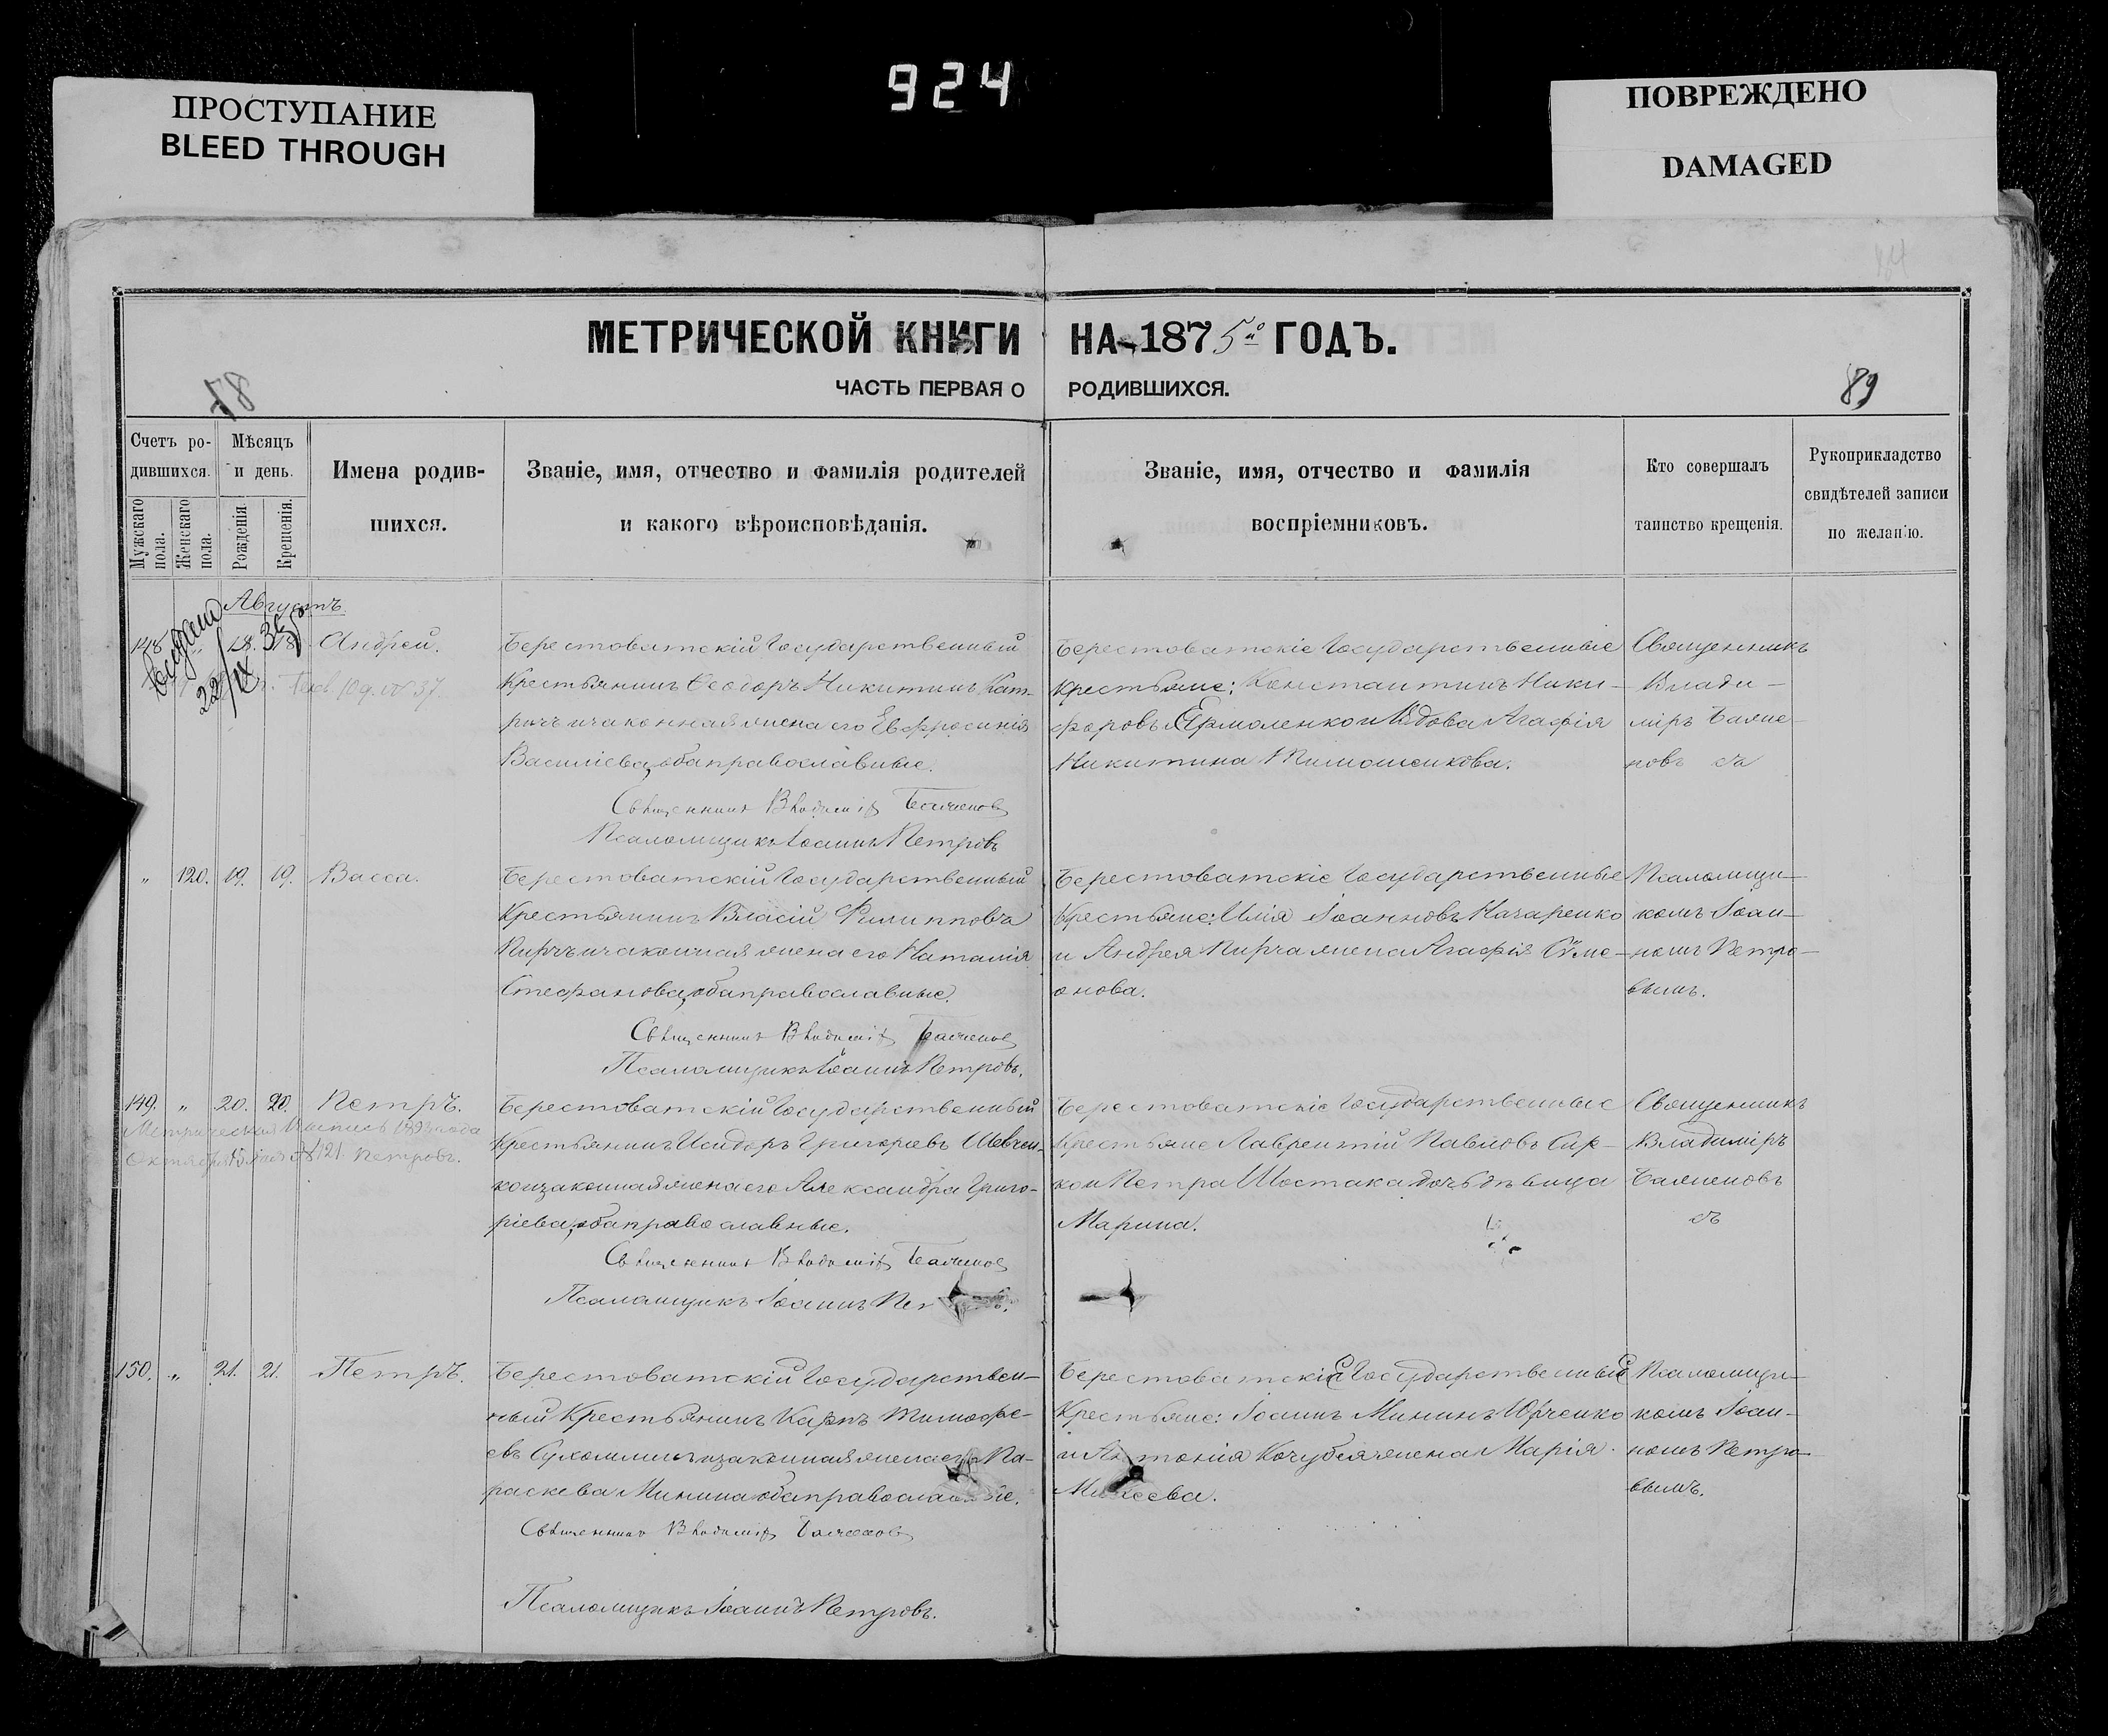 924
ПРОСТУПАНИЕ
BLEED THROUGH
ПОВРЕЖДЕНО
DAMAGED
МЕТРИЧЕСКОЙ КНИГИ НА 1875й ГОДЪ.
ЧАСТЬ ПЕРВАЯ О РОДИВШИХСЯ.
89
Счетъ ро-
дившихся.
Мужскаго пола.
Женскаго пола.
Мѣсяцъ
и день.
Рожденія.
Крещенія.
Имена родив-
шихся.
Званіе, имя, отчество и фамилія родителей
и какого вѣроисповѣданія.
Званіе, имя, отчество и фамилія
воспріемниковъ.
Кто совершалъ
таинство крещенія.
Рукоприкладство
свидѣтелей записи
по желанію.
Августъ
148. " 18. 18. Андрей.
Берестоватскій Государственный
Крестьянинъ Ѳеодоръ Никитинъ
и законная жена его Евфросинія
Василіева, оба православные.
Священникъ Владиміръ
Псаломщикъ Іоаннъ Петровъ
Берестоватскіе Государственные
Крестьяне: Константинъ Ники-
форовъ Ермоленко и Вдова Агафія
Никитина Тимошенкова.
Священникъ
Влади-
міръ Баяне-
новъ съ
" 120. 19. 19. Васса.
Берестоватскій Государственный
Крестьянинъ Власій Филипповъ
и законная жена его Наталія
Стефанова, оба православные.
Священникъ Владиміръ
Псаломщикъ Іоаннъ Петровъ.
Берестоватскіе Государственные
Крестьяне: Илія Іоанновъ Назаренко
и Андрея Пирча жена Агафія Сѵме-
онова.
Псаломщи-
комъ Іоан-
номъ Петро-
вымъ.
149. " 20. 20. Петръ.
Метрическая Выпись 1893 года
Октября № 121. Петровъ.
Берестоватскій Государственный
Крестьянинъ Исидоръ Григорьевъ Шевчен-
ко и законная жена его Александра Григо-
ріева, оба православные.
Священникъ Владиміръ
Псаломщикъ Іоаннъ
Берестоватскіе Государственные
Крестьяне Лаврентій Павловъ Сир-
ко и Петра Шостака дочь дѣвица
Марина.
Священникъ
Владиміръ
Баяненовъ
съ
150. " 21. 21. Петръ.
Берестоватскій Государствен-
ный Крестьянинъ Карпъ Тимофе-
евъ Сухомлинъ и законная жена его Па-
раскева Минина оба православные.
Священникъ Владиміръ
Псаломщикъ Іоаннъ Петровъ.
Берестоватскіе Государственные
Крестьяне: Іоаннъ Мининъ Юрченко
и Антонія Кочубея жена Марія
Псаломщи-
комъ Іоан-
номъ Петро-
вымъ.